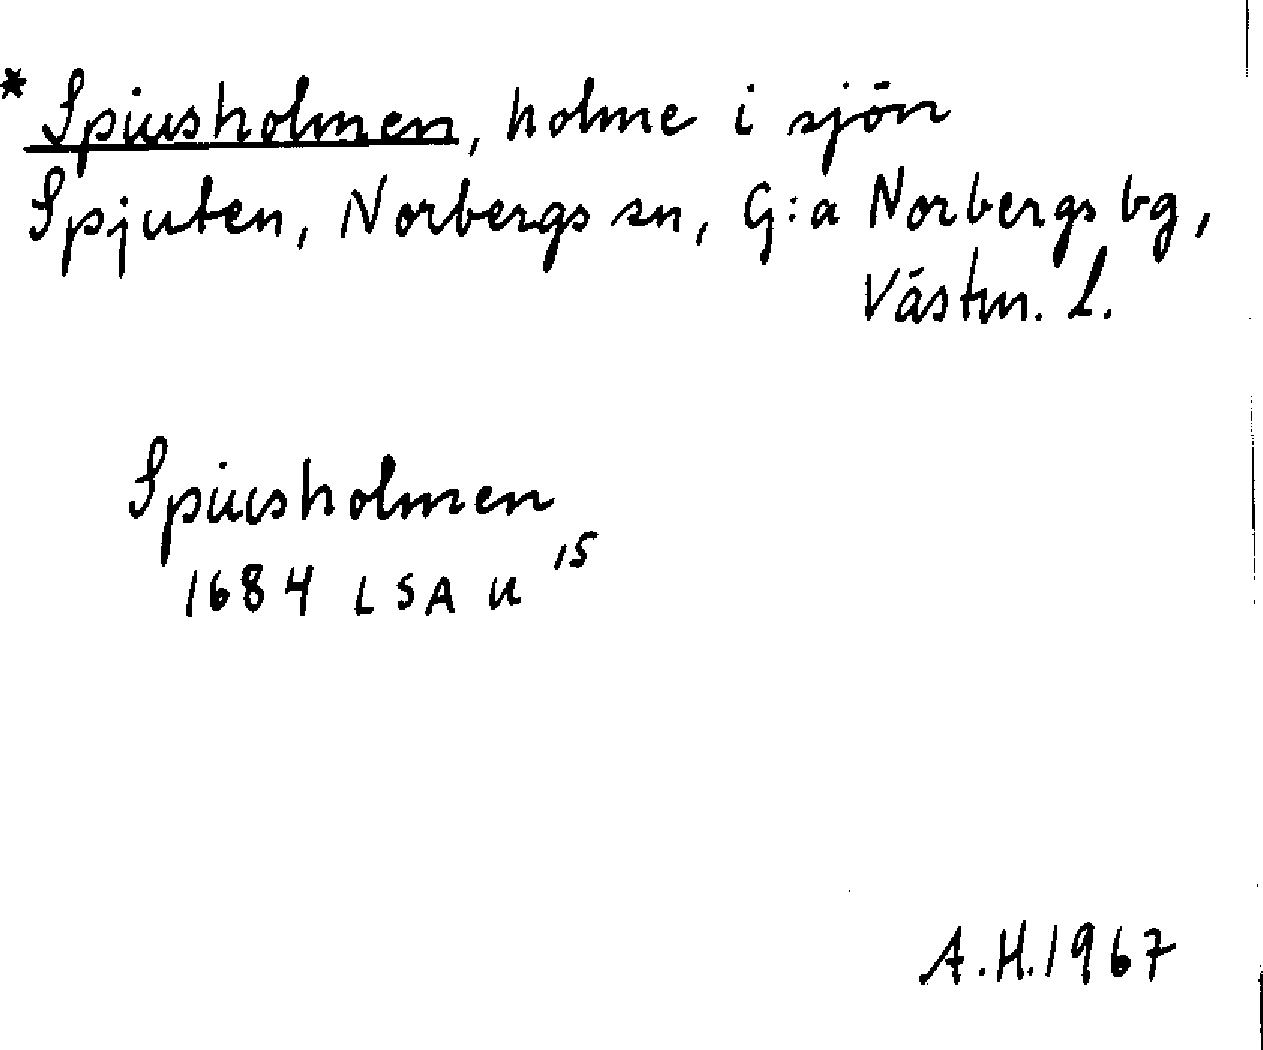 * Spiusholmen, holme i sjön
Spjuten, Norbergs sn, G:a Norbergs bg,
Västm. l.
Spiusholmen
1684 LSA U 15
A.H. 1967